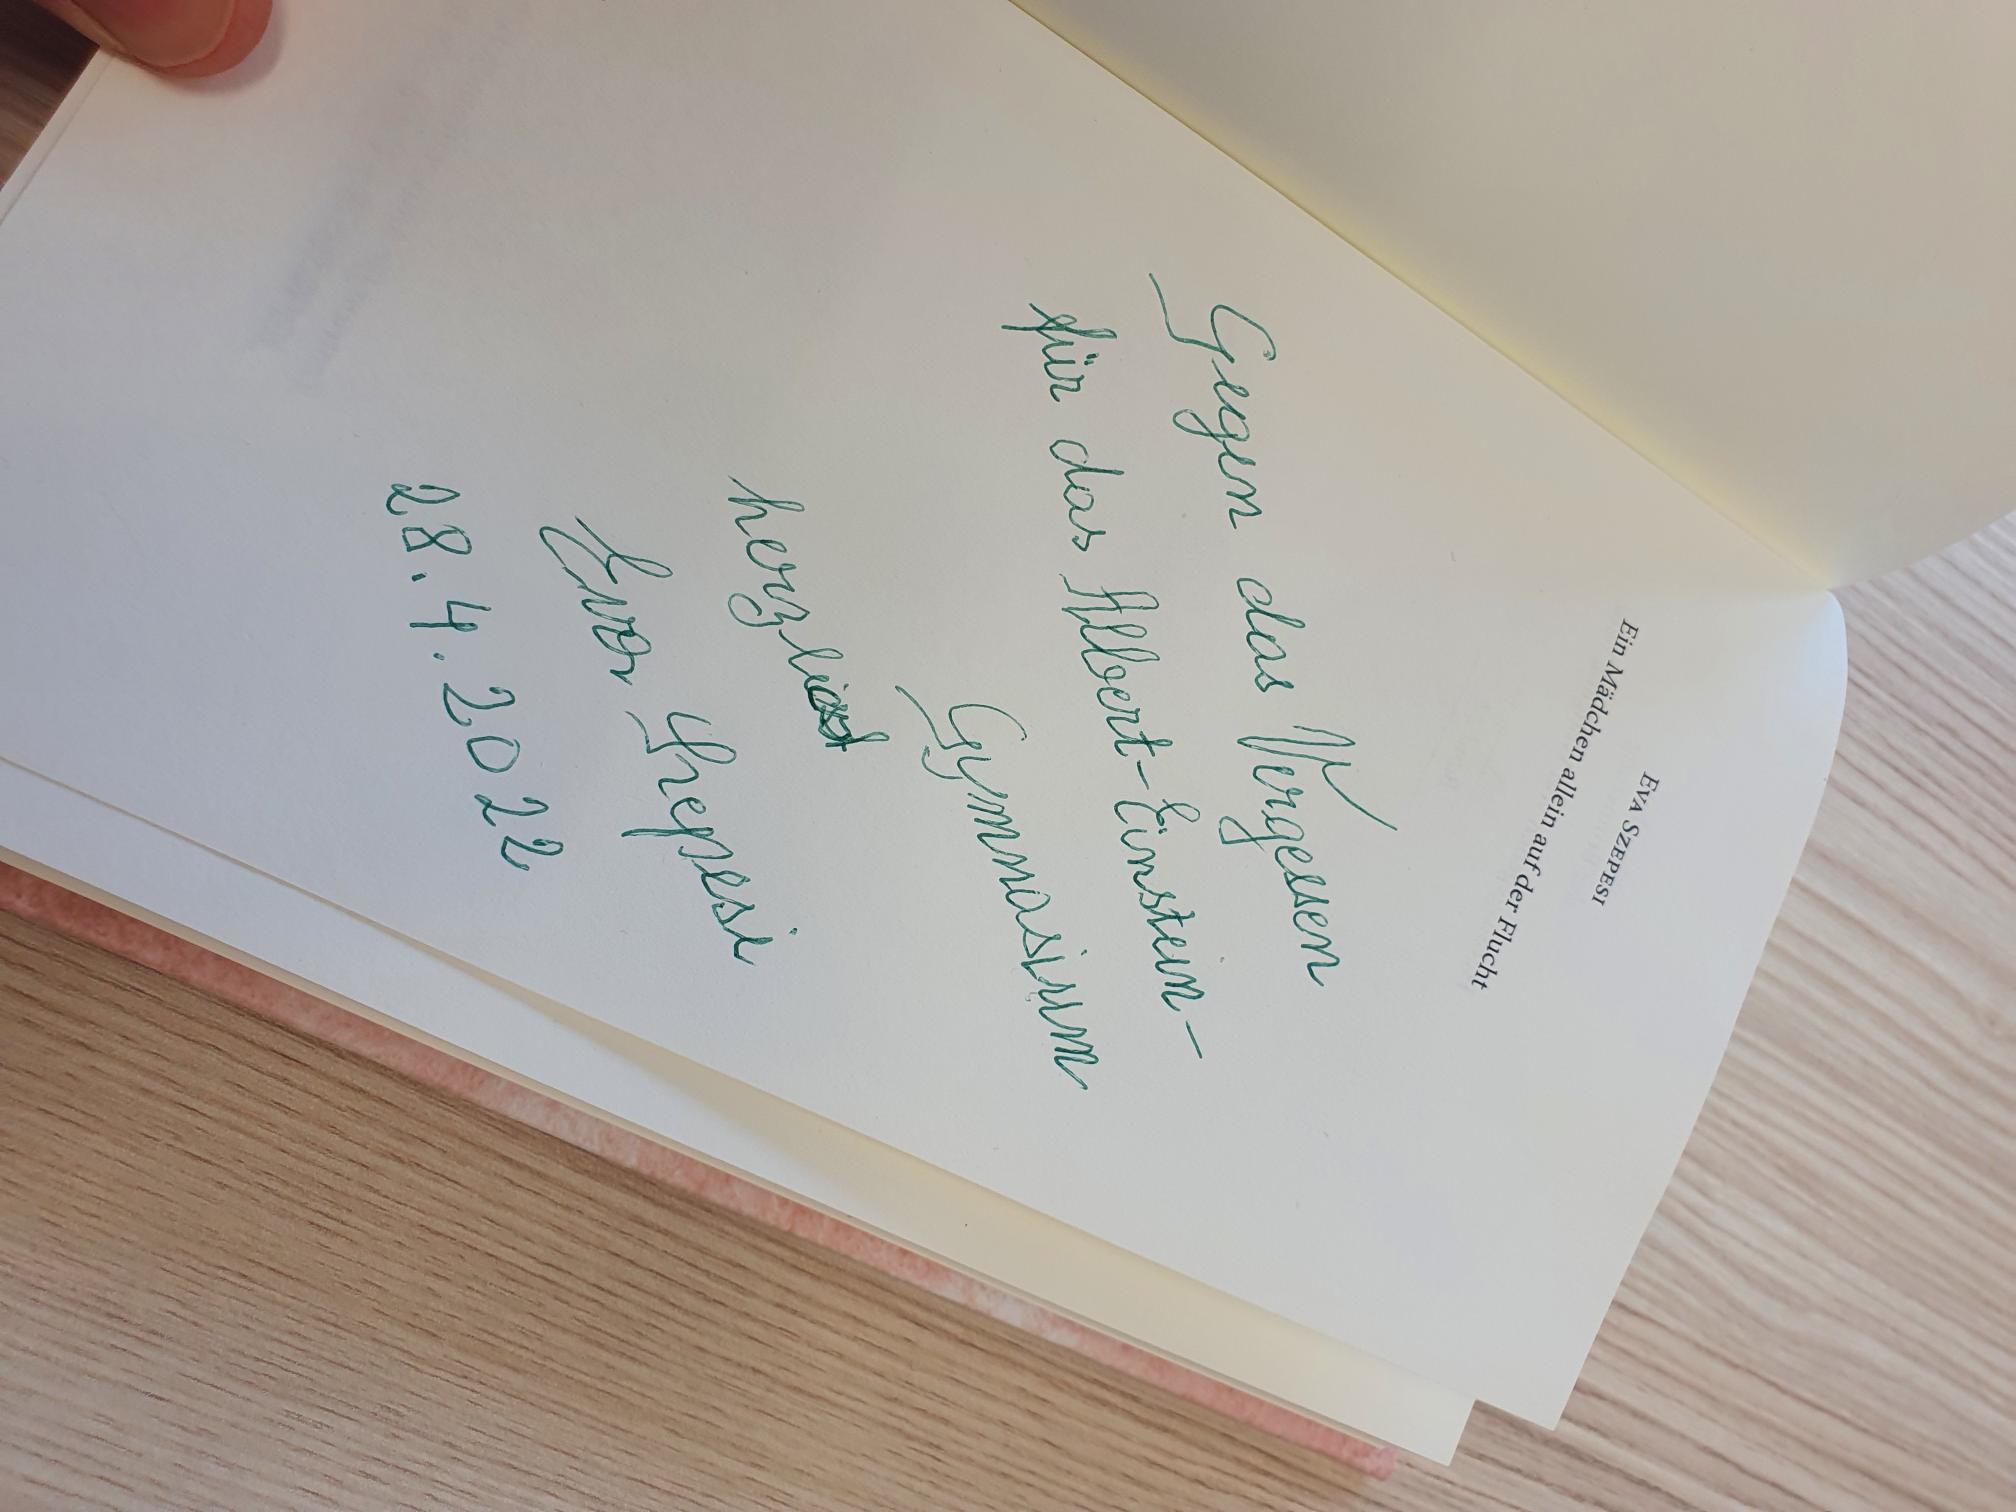 EVA SZEPESI
Ein Mädchen allein auf der Flucht
Gegen das Vergessen
für das Albert-Einstein-
Gymnasium
herzlichst
Eva Szepesi
28.4.2022